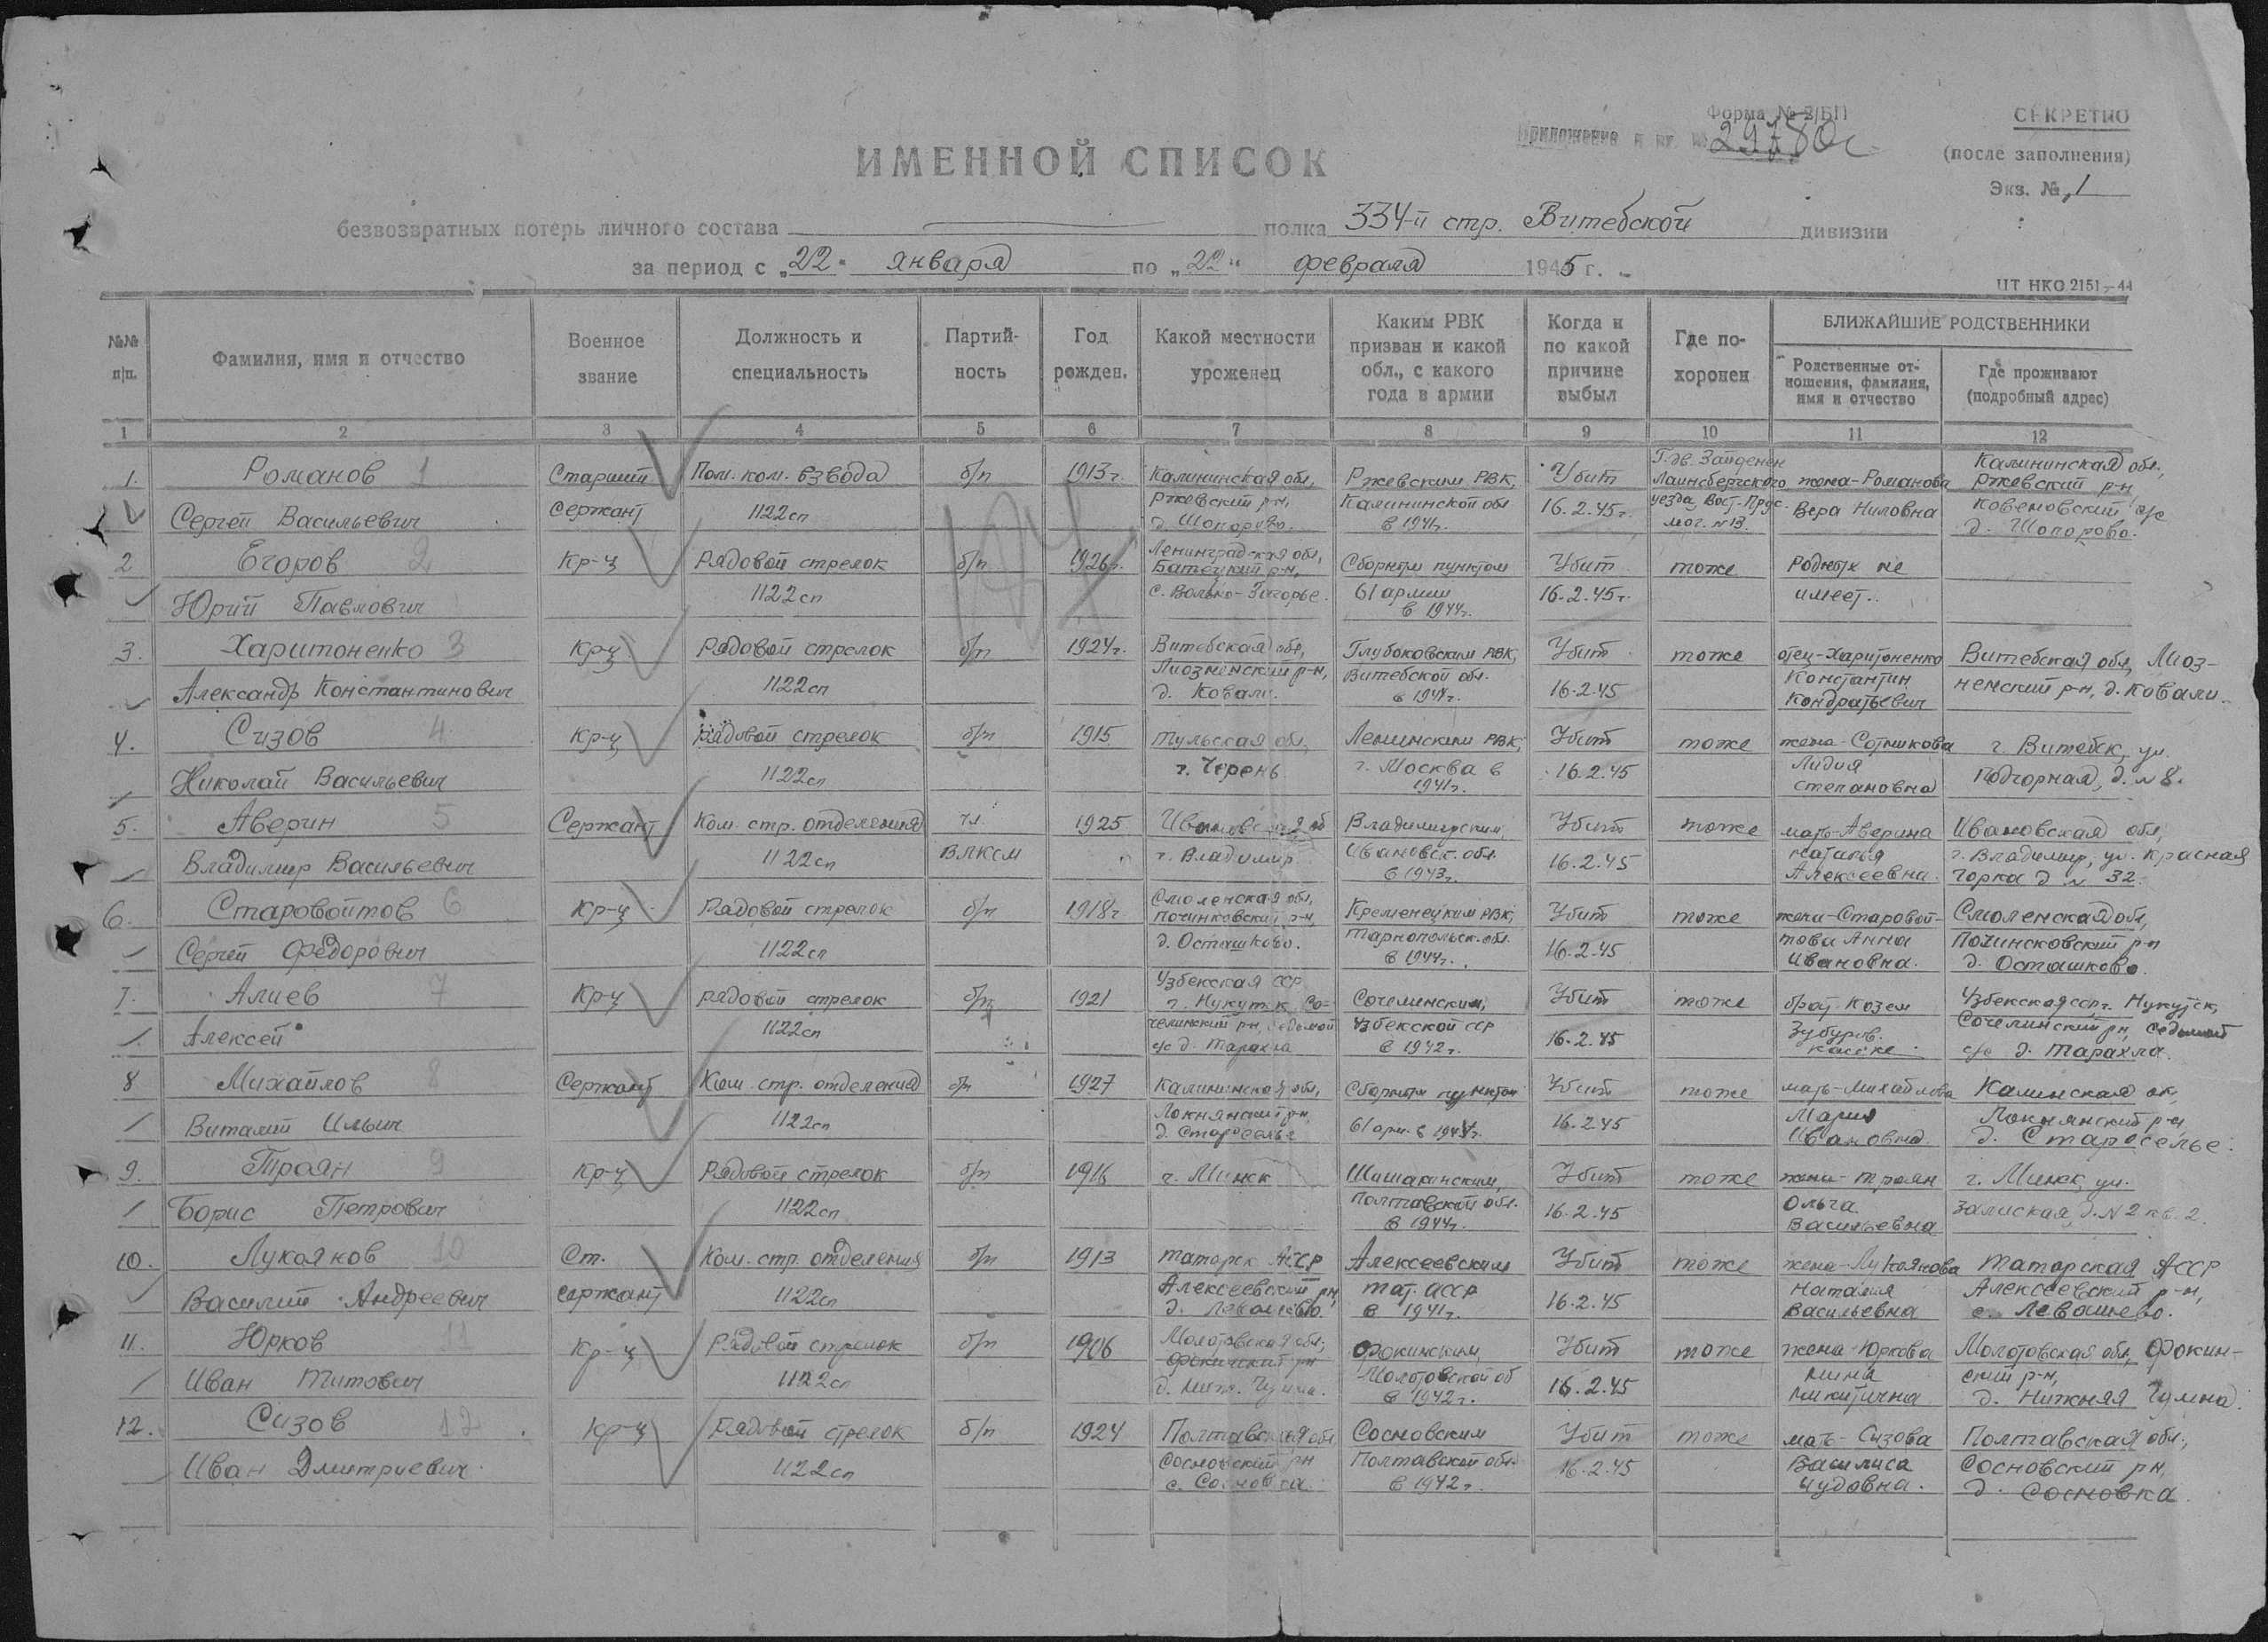 Форма № 2/БП
Приложение к вх. № 29780с
СЕКРЕТНО
(после заполнения)
Экз. № 1
ИМЕННОЙ СПИСОК
безвозвратных потерь личного состава полка 334-й стр. Витебской дивизии
за период с „22" января по „22" февраля 1945 г.
ЦТ НКО 2151-44
№№ п/п.
Фамилия, имя и отчество
Военное звание
Должность и специальность
Партийность
Год рожден.
Какой местности уроженец
Каким РВК призван и какой обл., с какого года в армии
Когда и по какой причине выбыл
Где похоронен
БЛИЖАЙШИЕ РОДСТВЕННИКИ
Родственные отношения, фамилия, имя и отчество
Где проживают (подробный адрес)
1 2 3 4 5 6 7 8 9 10 11 12
1. Романов 1 Сергей Васильевич
Старший Сержант
Пом. ком. взвода 1122сп
б/п
1913 г.
Калининская обл., Ржевский р-н, д. Шопорово.
Ржевским РВК, Калининской обл. в 1941г.
Убит 16.2.45г.
Г.дв. Зайденен Лаинсбергского уезда, Вост-Прус. мог. №13
жена-Романова Вера Ниловна
Калининская обл., Ржевский р-н, с/с д. Шопорово.
2 Егоров 2 Юрий Павлович
Кр-ц
Рядовой стрелок 1122сп
б/п
1926г.
Ленинградская обл, Батецкий р-н, с.
Сборным пунктом 61 армии в 1944г.
Убит 16.2.45г.
тоже
Родных не имеет.
3. Харитоненко 3 Александр Константинович
Кр-ц
Рядовой стрелок 1122сп
б/п
1924г.
Витебская обл, Лиозненский р-н, д. Ковали.
Глубоковским РВК, Витебской обл. в 1944г.
Убит 16.2.45
тоже
отец-Харитоненко Константин Кондратьевич
Витебская обл, Лиозненский р-н, д. Ковали.
4. Сизов 4 Николай Васильевич
Кр-ц
Рядовой стрелок 1122сп
б/п
1915
Тульская обл, г. Чернь
Ленинским РВК, г. Москва в 1941г.
Убит 16.2.45
тоже
жена-Сотникова Лидия Степановна
г. Витебск, ул. Подгорная, д. №8.
5. Аверин 5 Владимир Васильевич
Сержант
Ком. стр. отделения 1122сп
чл. ВЛКСМ
1925
Ивановская об г. Владимир
Владимирским, Ивановск. обл. в 1943г.
Убит 16.2.45
тоже
мать-Аверина Наталья Алексеевна
Ивановская обл, г. Владимир, ул. Красная горка д № 32.
6. Старовойтов 6 Сергей Федорович
Кр-ц
Рядовой стрелок 1122сп
б/п
1918г
Смоленская обл, Починковский р-н, д. Осташково.
Кременецким РВК, Тарнопольск. обл. в 1944г.
Убит 16.2.45
тоже
жена-Старовойтова Анна Ивановна.
Смоленская обл, Починсковский р-н д. Осташково.
7. Алиев 7 Алексей
Кр-ц
Рядовой стрелок 1122сп
б/п
1921
Узбекская ССР г. Нукутск, Сочелинский р-н, с/с д. Тарахла
Сочелинским, Узбекской ССР в 1942г.
Убит 16.2.45
тоже
брат Козем
Узбекская ССР г. Нукутск, Сочелинский р-н, с/с д. Тарахла
8 Михайлов 8 Виталий Ильич
Сержант
Ком. стр. отделения 1122сп
б/п
1927
Калининская обл, Локнянский р-н, д. Староселье
Сборным пунктом 61 арм. в 1944г.
Убит 16.2.45
тоже
мать-Михайлова Мария Ивановна
Калинская об, Локнянский р-н, д. Староселье.
9. Троян 9 Борис Петрович
Кр-ц
Рядовой стрелок 1122сп
б/п
1916
г. Минск
Шишакинским, Полтавской обл. в 1944г.
Убит 16.2.45
тоже
жена-Троян Ольга Васильевна
г. Минск, ул. д. №2 кв. 2.
10. Лукоянов 10 Василий Андреевич
Ст. сержант
Ком. стр. отделения 1122сп
б/п
1913
Татарск АССР Алексеевский р-н, д. Левашево.
Алексеевским Тат. АССР в 1941г.
Убит 16.2.45
тоже
жена-Лукоянова Наталия Васильевна
Татарская АССР Алексеевский р-н, с. Левашево.
11. Юрков 11 Иван Титович
Кр-ц
Рядовой стрелок 1122сп
б/п
1906
Молотовская обл, Фокинский р-н д.
Фокинским, Молотовской об в 1942г.
Убит 16.2.45
тоже
жена Юркова Никитична
Молотовская обл, Фокинский р-н, д. Нижняя
12. Сизов 12 Иван Дмитриевич
Кр-ц
Рядовой стрелок 1122сп
б/п
1924
Полтавская обл Сосновский р-н с. Сосновка
Сосновским Полтавской обл. в 1942г.
Убит 16.2.45
тоже
мать-Сизова Василиса
Полтавская обл., Сосновский р-н, д. Сосновка